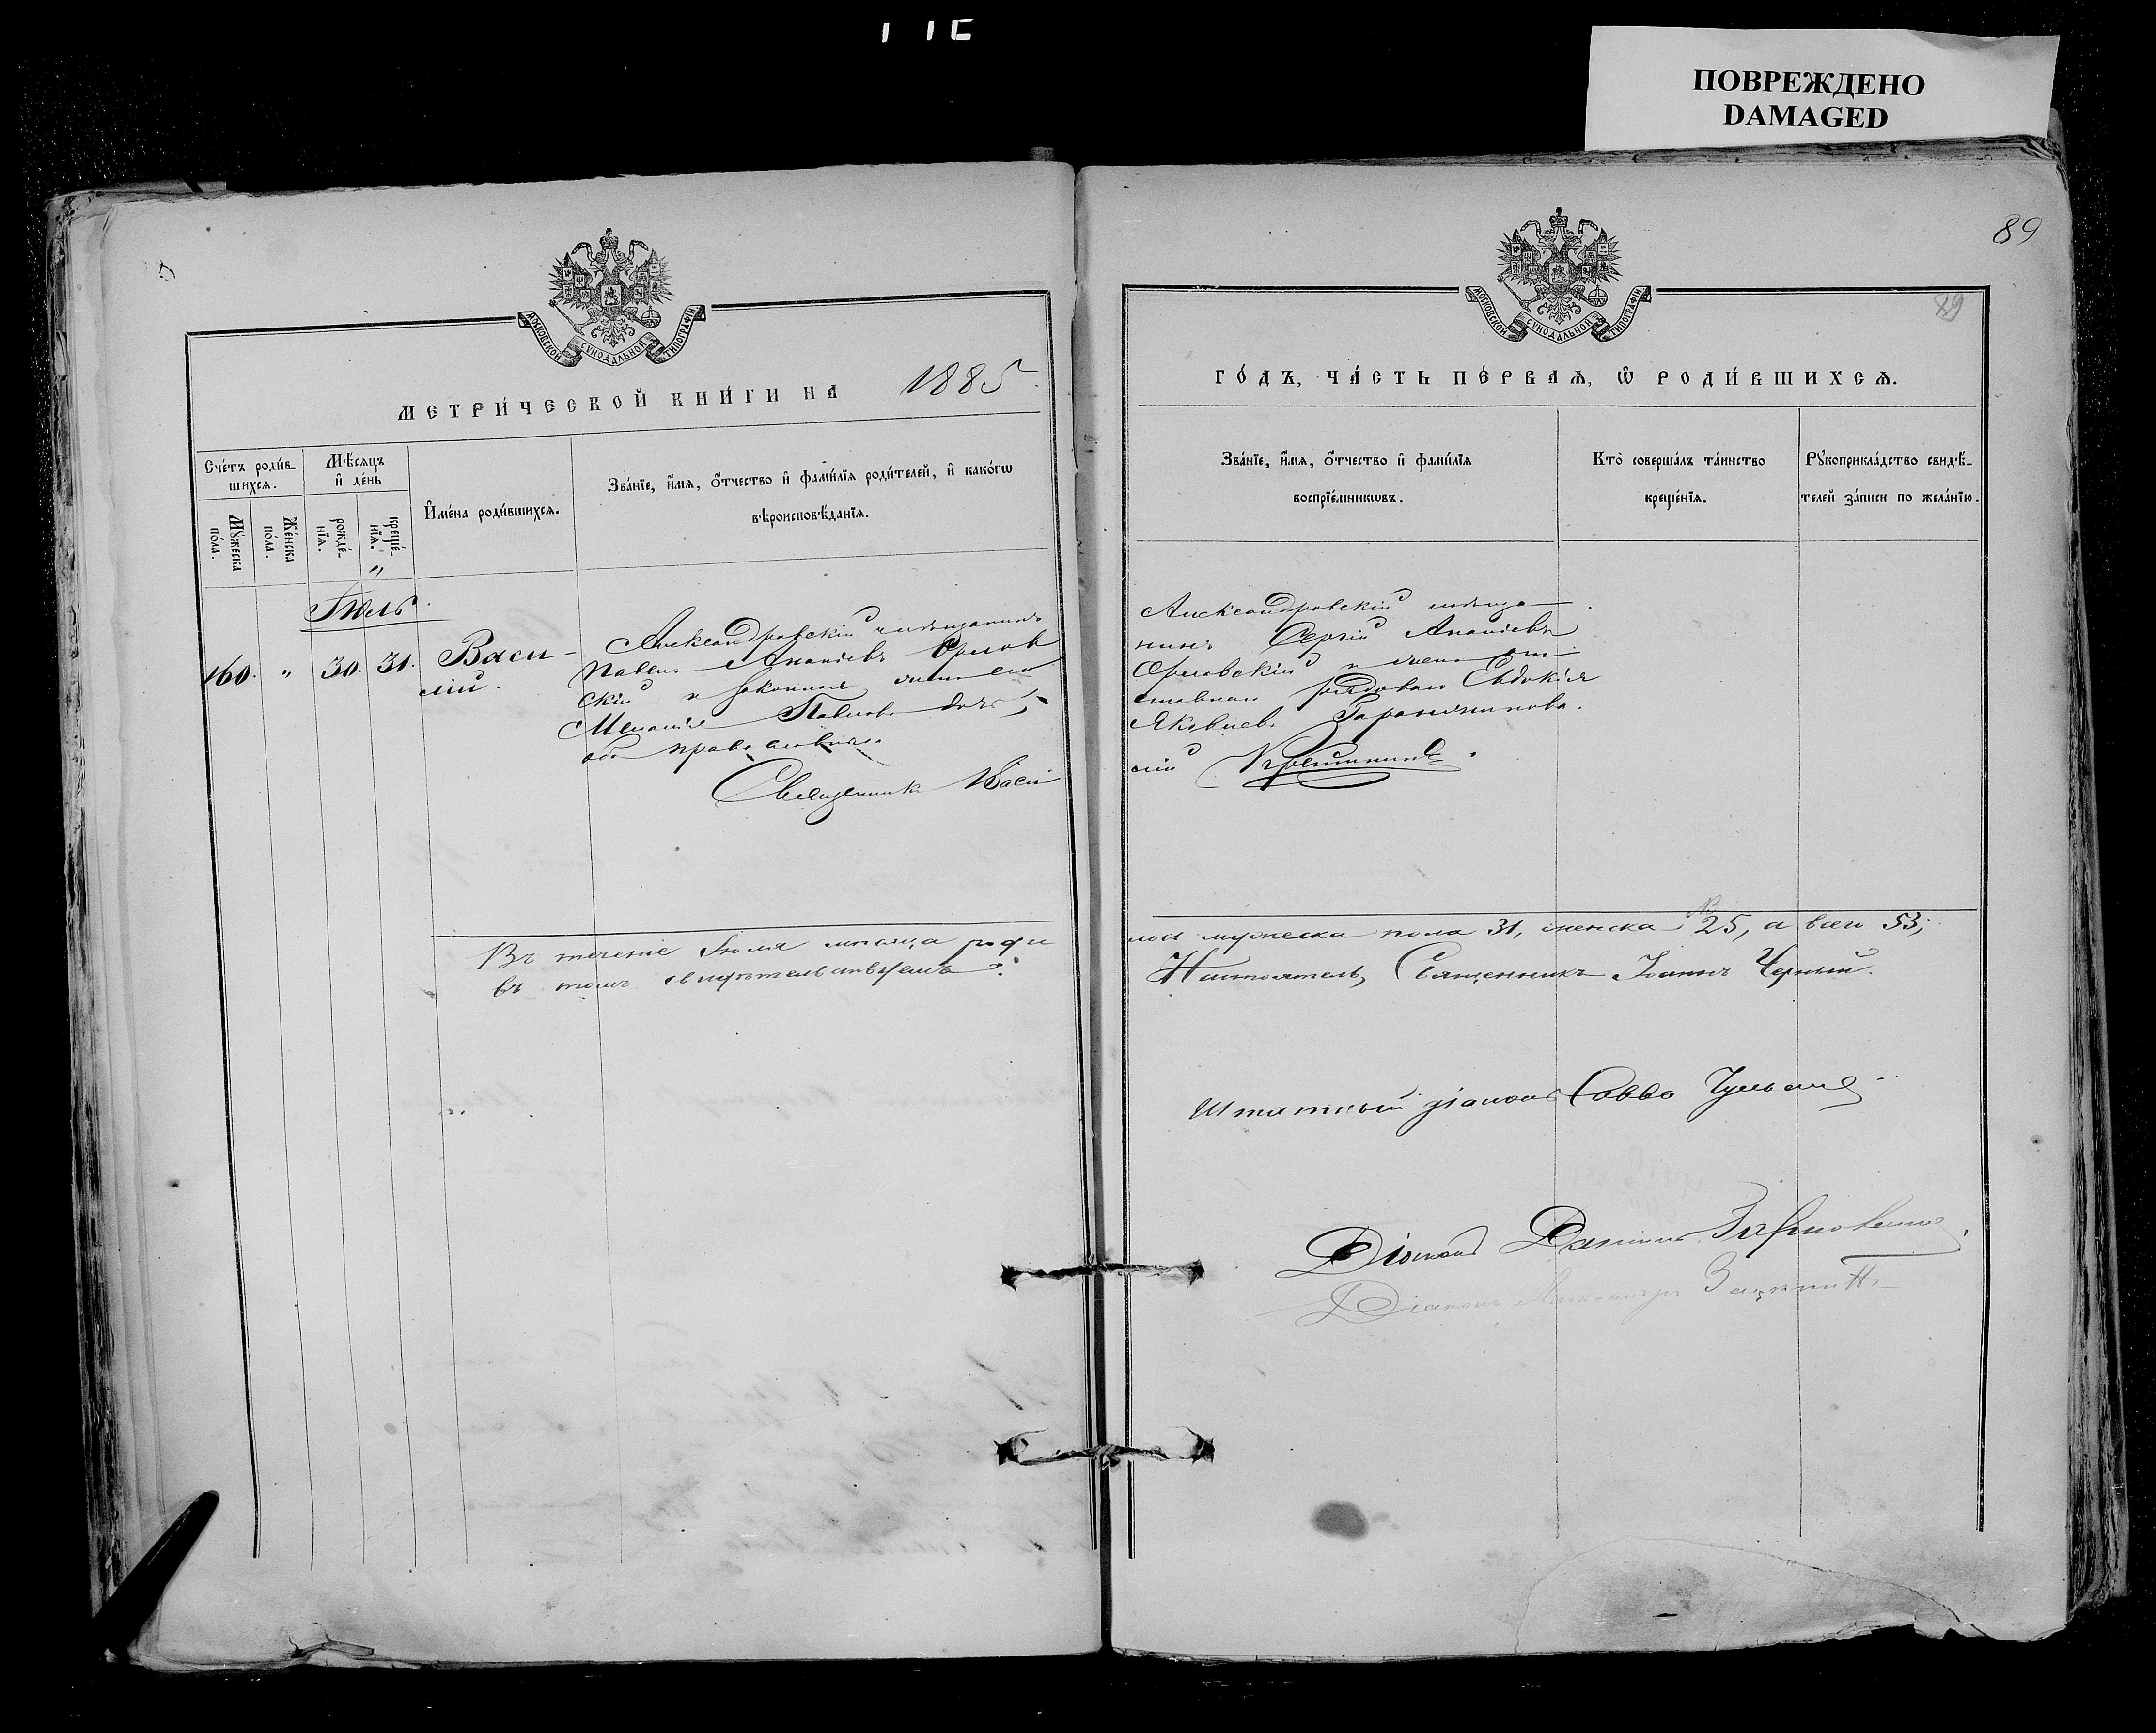 ПОВРЕЖДЕНО
DAMAGED
89
89
МОСКОВСКОЙ СУНОДАЛЬНОЙ ТИПОГРАФІИ
МЕТРИ́ЧЕСКОЙ КНИ́ГИ НА 1885
Сче́тъ роди́в-
шихся.
Мѣ́сяцъ
и҆ де́нь
Мꙋ́жеска
по́ла.
Же́нска
по́ла.
рожде́-
нїѧ.
креще́-
нїѧ.
И҆мена̀ роди́вшихся.
Зва́нїе, и҆́мѧ, ѻ҆́тчество и҆ фами́лїѧ роди́телей, и҆ како́гѡ
вѣроисповѣ́данїѧ.
Іюль.
160. " 30. 31. Васи-
лій.
Александровскій мѣщанинъ
Павелъ Ананіевъ Орлов
скій и законная жена его
Меланія Павлова доч;
оба православные.
Священникъ Васи
Въ теченіе Іюля мѣсяца роди
въ томъ свидѣтельствуемъ:
МОСКОВСКОЙ СУНОДАЛЬНОЙ ТИПОГРАФІИ
ГО́ДЪ, ЧА́СТЬ ПЕ́РВАѦ, Ѡ҆ РОДИ́ВШИХСѦ.
Зва́нїе, и҆́мѧ, ѻ҆́тчество и҆ фами́лїѧ
воспрїе́мникѡвъ.
Кто̀ соверша́лъ та́инство
креще́нїѧ.
Рꙋкоприкла́дство свидѣ́-
телей за́писи по жела́нїю.
Александровскій мѣща-
нинъ Сергій Ананіевъ
Орловскій и жена от-
ставнаго рядоваго Евдокія
Яковлева
лій
лось мужеска пола 31, женска 25, а всего 53;
Настоятель, Священникъ Іоаннъ Черный.
Штатный діаконъ Савва
Діаконъ Даніилъ
Діаконъ Александръ